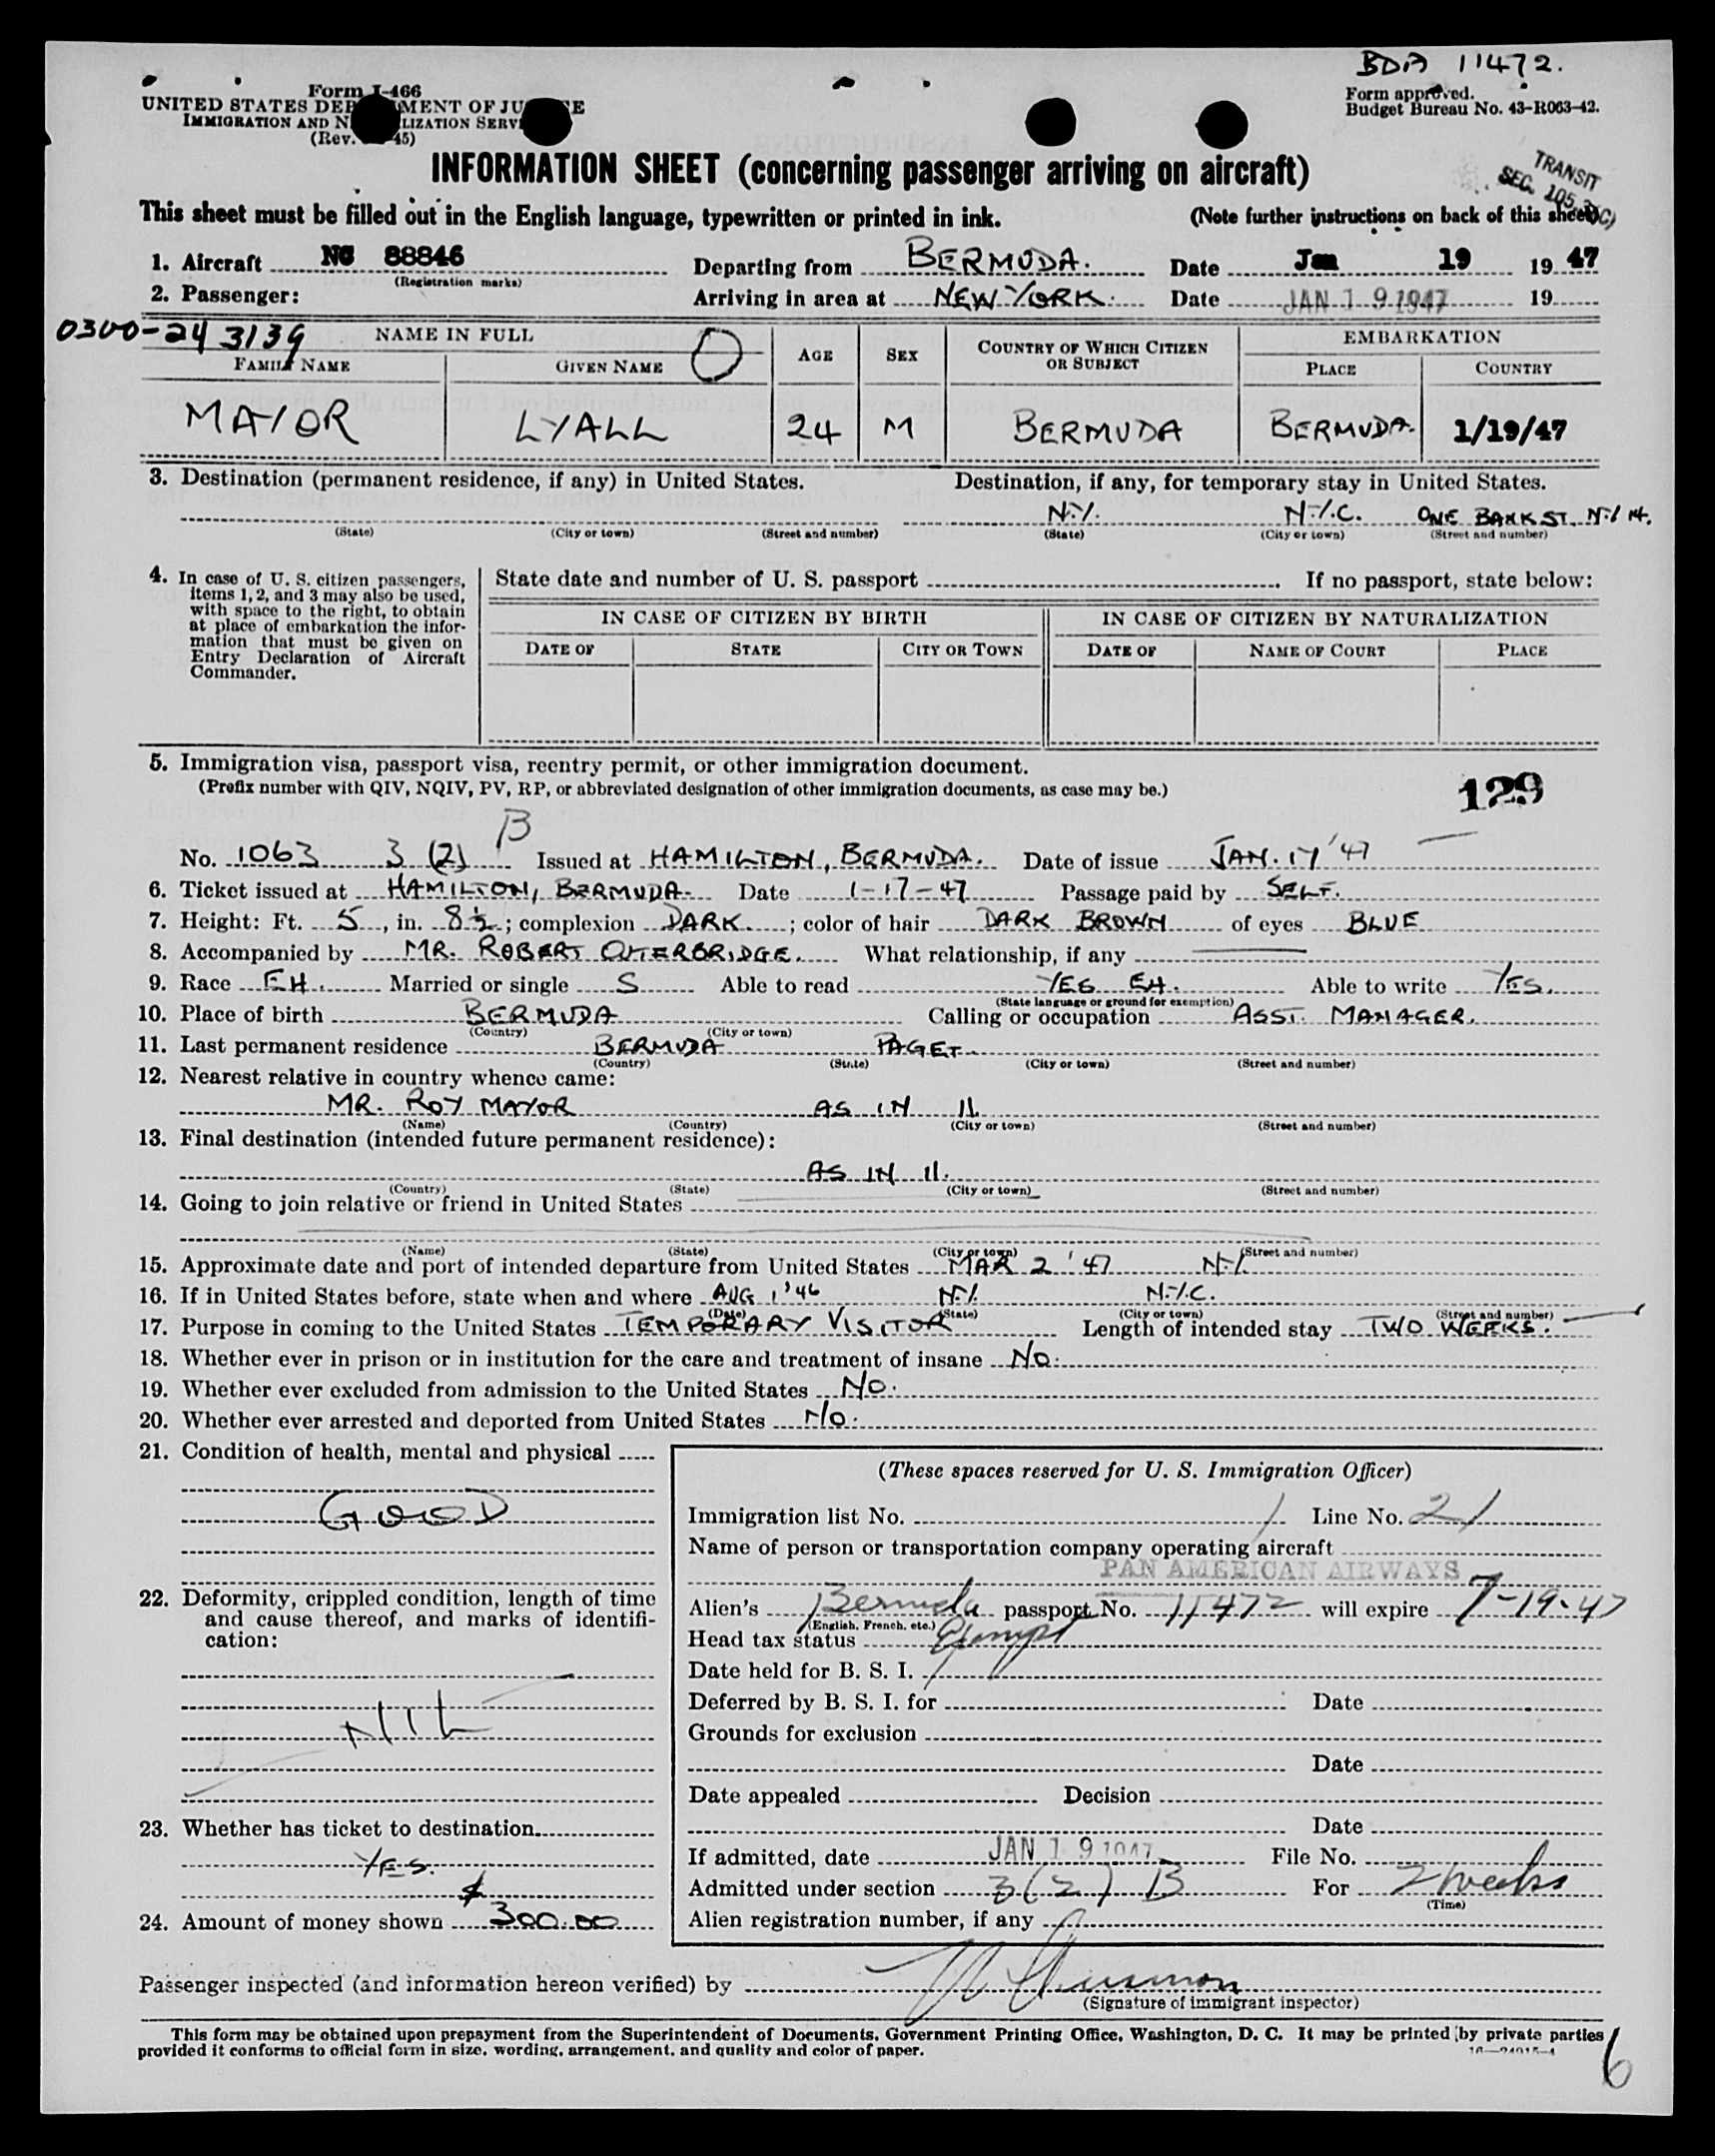 BDA 11472.
Form I-466
UNITED STATES DEP MENT OF JU E
IMMIGRATION AND N LIZATION SERV
(Rev. 45)
Form approved.
Budget Bureau No. 43-R063-42.
INFORMATION SHEET (concerning passenger arriving on aircraft)
TRANSIT
SEC. 105.3(C)
This sheet must be filled out in the English language, typewritten or printed in ink. (Note further instructions on back of this sheet)
1. Aircraft NC 88846 Departing from BERMUDA. Date Jan 19 1947
(Registration marks)
2. Passenger: Arriving in area at NEW YORK. Date JAN 19 1947 19
0300-243139 NAME IN FULL O AGE SEX COUNTRY OF WHICH CITIZEN OR SUBJECT EMBARKATION
FAMILY NAME GIVEN NAME PLACE COUNTRY
MAYOR LYALL 24 M BERMUDA BERMUDA. 1/19/47
3. Destination (permanent residence, if any) in United States. Destination, if any, for temporary stay in United States.
N.Y. N.Y.C. ONE BANK ST. N.Y 14.
(State) (City or town) (Street and number) (State) (City or town) (Street and number)
4. In case of U. S. citizen passengers, items 1, 2, and 3 may also be used, with space to the right, to obtain at place of embarkation the information that must be given on Entry Declaration of Aircraft Commander.
State date and number of U. S. passport If no passport, state below:
IN CASE OF CITIZEN BY BIRTH IN CASE OF CITIZEN BY NATURALIZATION
DATE OF STATE CITY OR TOWN DATE OF NAME OF COURT PLACE
5. Immigration visa, passport visa, reentry permit, or other immigration document.
(Prefix number with QIV, NQIV, PV, RP, or abbreviated designation of other immigration documents, as case may be.)
129
No. 1063 3 (2) B Issued at HAMILTON, BERMUDA. Date of issue JAN. 17 '47
6. Ticket issued at HAMILTON, BERMUDA. Date 1-17-47 Passage paid by SELF.
7. Height: Ft. 5, in. 8½; complexion DARK.; color of hair DARK BROWN of eyes BLUE
8. Accompanied by MR. ROBERT OUTERBRIDGE. What relationship, if any
9. Race EH. Married or single S Able to read YES EH. Able to write YES.
(State language or ground for exemption)
10. Place of birth BERMUDA Calling or occupation ASST. MANAGER.
(Country) (City or town)
11. Last permanent residence BERMUDA PAGET.
(Country) (State) (City or town) (Street and number)
12. Nearest relative in country whence came:
MR. ROY MAYOR AS IN 11.
(Name) (Country) (City or town) (Street and number)
13. Final destination (intended future permanent residence):
AS IN 11.
(Country) (State) (City or town) (Street and number)
14. Going to join relative or friend in United States
(Name) (State) (City or town) (Street and number)
15. Approximate date and port of intended departure from United States MAR 2 '47 N.Y.
16. If in United States before, state when and where AUG 1 '46 N.Y. N.Y.C.
(Date) (State) (City or town) (Street and number)
17. Purpose in coming to the United States TEMPORARY VISITOR Length of intended stay TWO WEEKS.
18. Whether ever in prison or in institution for the care and treatment of insane NO.
19. Whether ever excluded from admission to the United States NO.
20. Whether ever arrested and deported from United States NO.
21. Condition of health, mental and physical
GOOD
22. Deformity, crippled condition, length of time and cause thereof, and marks of identification:
NIL
23. Whether has ticket to destination
YES.
24. Amount of money shown $300.00
(These spaces reserved for U. S. Immigration Officer)
Immigration list No. 1 Line No. 21
Name of person or transportation company operating aircraft
PAN AMERICAN AIRWAYS
Alien's Bermuda passport No. 11472 will expire 7-19-47
(English, French, etc.)
Head tax status Exempt
Date held for B. S. I.
Deferred by B. S. I. for Date
Grounds for exclusion
Date
Date appealed Decision
Date
If admitted, date JAN 19 1947 File No.
Admitted under section 3(2) B For 2 weeks
(Time)
Alien registration number, if any
Passenger inspected (and information hereon verified) by
(Signature of immigrant inspector)
This form may be obtained upon prepayment from the Superintendent of Documents, Government Printing Office, Washington, D. C. It may be printed by private parties
provided it conforms to official form in size, wording, arrangement, and quality and color of paper.
16—24915-4
6